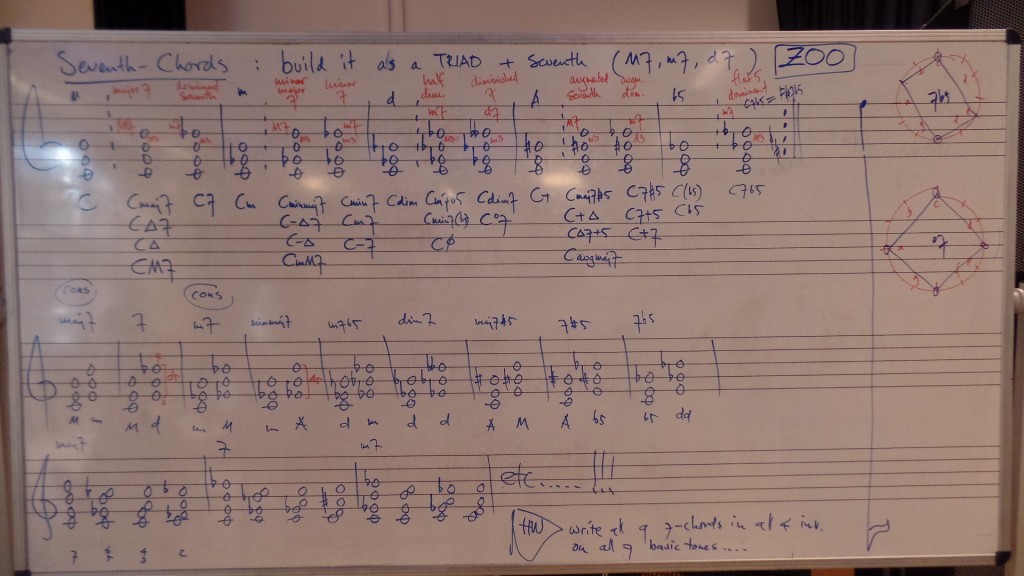 Seventh-Chords : build it as a TRIAD + Seventh (M7, m7, d7) ZOO
M major 7 dominant seventh m minor major 7 minor 7 d half dim. diminished 7 A augmented seventh augm. dom. b5 flat 5 dominant
M7 m7 M7 m7 m7 d7 M7 m7 m7
7b5
C Cmaj7 C7 Cm Cminmaj7 Cmin7 Cdim Cdim7 C+ Cmaj7#5 C7#5 C(b5) C7b5
CΔ7 C-Δ7 Cm7 C°7 C+Δ C7+5 Cb5
CΔ C-Δ C-7 CØ CΔ7+5 C+7
CM7 CmM7 Caugmaj7
°7
cons cons
maj7 7 m7 minmaj7 m7b5 dim7 maj7#5 7#5 7b5
M m M d m M m A d m d d A M A b5 b5 dd
maj7 7 m7
etc..... !!!
HW write all 9 7-chords in all 4 inv.
on all 9 basic tones....
7 2